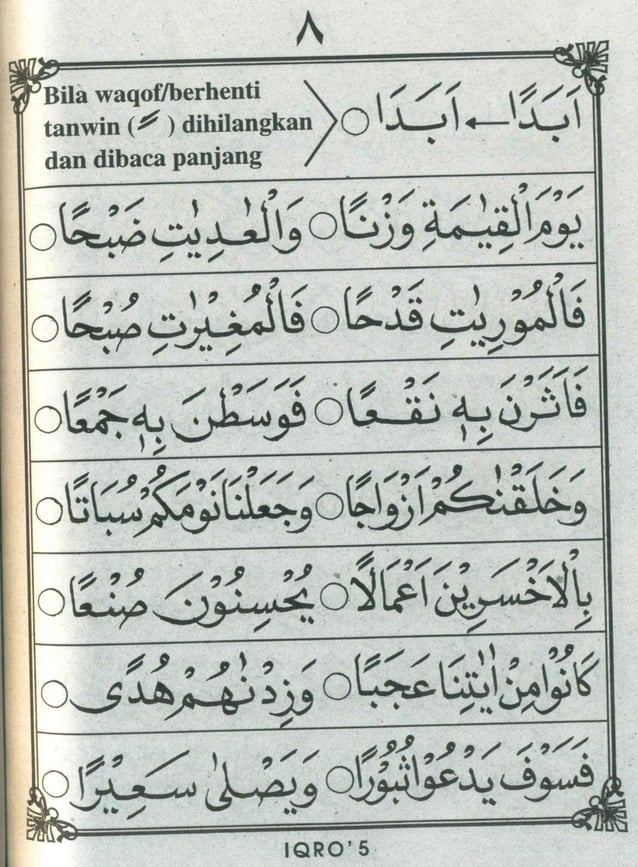 ٨
Bila waqof/berhenti
tanwin ( ً ) dihilangkan
dan dibaca panjang
اَبَدًا ← اَبَدَا ○
يَوْمَ الْقِيٰمَةِ وَزْنًا ○ وَالْعٰدِيٰتِ ضَبْحًا ○
فَالْمُوْرِيٰتِ قَدْحًا ○ فَالْمُغِيْرٰتِ صُبْحًا ○
فَاَثَرْنَ بِهٖ نَقْعًا ○ فَوَسَطْنَ بِهٖ جَمْعًا ○
وَخَلَقْنٰكُمْ اَزْوَاجًا ○ وَجَعَلْنَا نَوْمَكُمْ سُبَاتًا ○
بِالْاَخْسَرِيْنَ اَعْمَالًا ○ يُحْسِنُوْنَ صُنْعًا ○
كَانُوْا مِنْ اٰيٰتِنَا عَجَبًا ○ وَزِدْنٰهُمْ هُدًى ○
فَسَوْفَ يَدْعُوْا ثُبُوْرًا ○ وَيَصْلٰى سَعِيْرًا ○
IQRO'5